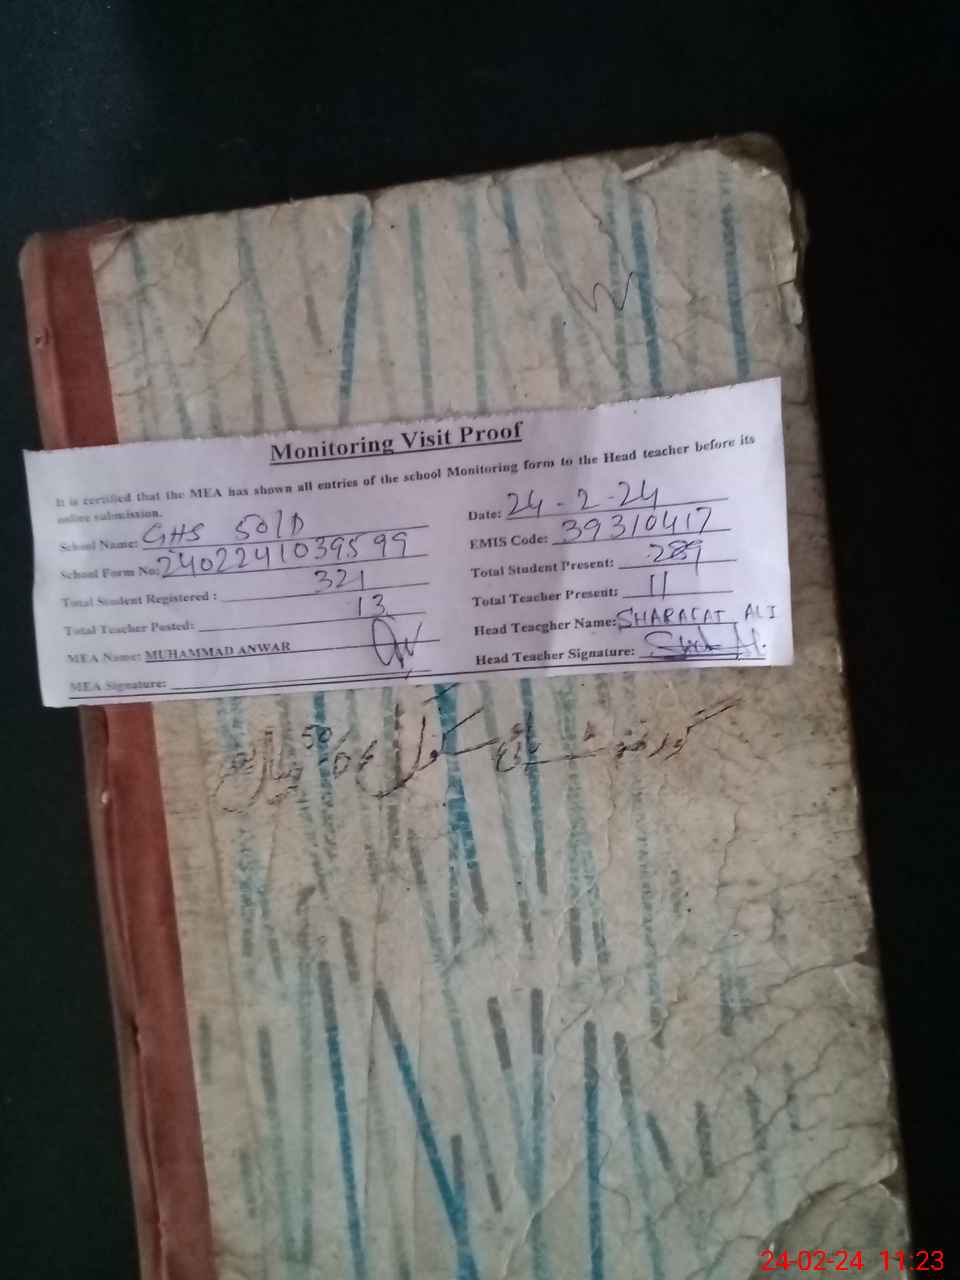 Monitoring Visit Proof
It is certified that the MEA has shown all entries of the school Monitoring form to the Head teacher before its
online submission.
School Name: GHS 50/D
Date: 24-2-24
School Form No: 2402241039599
EMIS Code: 39310417
Total Student Registered : 321
Total Student Present: 289
Total Teacher Posted: 13
Total Teacher Present: 11
MEA Name: MUHAMMAD ANWAR
Head Teacgher Name: SHARAFAT ALI
MEA Signature:
Head Teacher Signature:
گورنمنٹ ہائی سکول 50/D
24-02-24 11:23